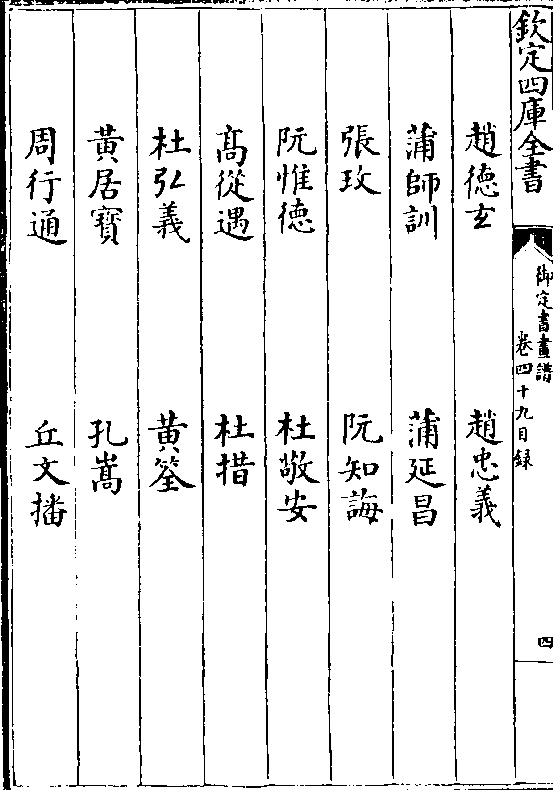 欽定四庫全書
御定書畫譜
卷四十九目録
四
趙德玄 趙忠義
蒲師訓 蒲延昌
張玫 阮知誨
阮惟德 杜敬安
髙從遇 杜措
杜弘義 黄筌
黄居寶 孔嵩
周行通 丘文播